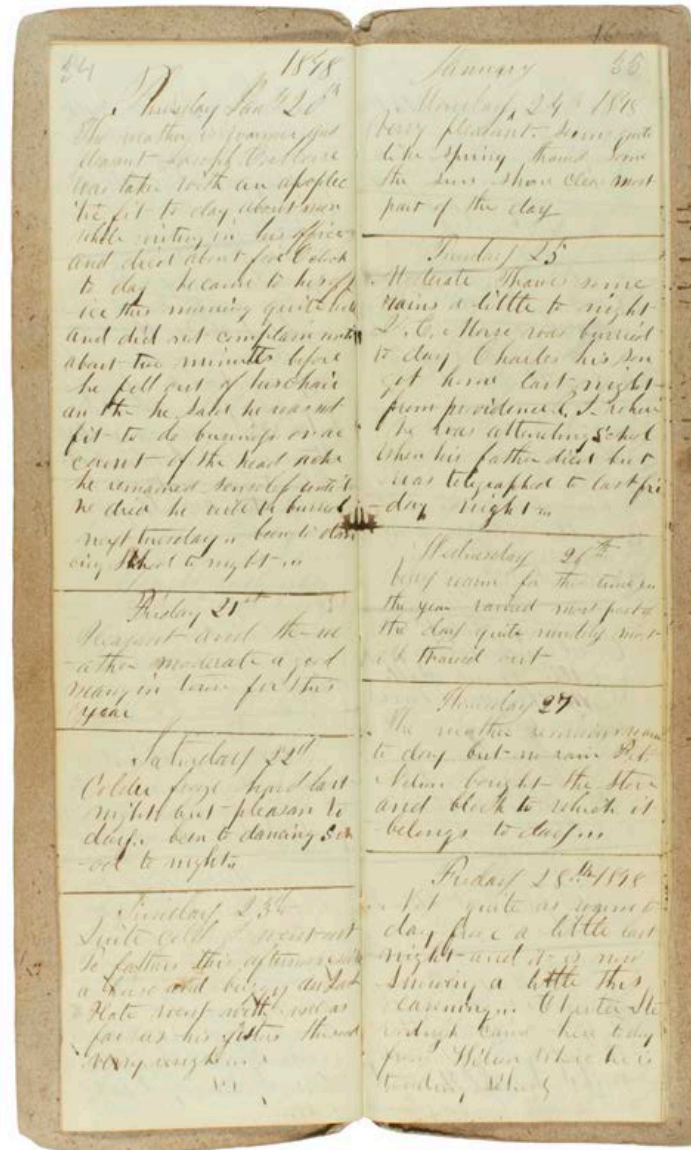 54 1848
Thursday Jan 20th
The weather is warmer and
pleasant Morse
was taken with an apoplec
tic fit to day about noon
while writing in his office
and died about five Oclock
to day he came to his of
ice this morning quite well
and did not complain until
about two minutes before
he fell out of his chair
he said he was not
fit to do business on ac
count of the head ache
he remained until
he died he will be burried
next tuesday been to dan
cing School to night
Friday 21st
Pleasant and the we
ather moderate a good
many in town for this
year
Saturday 22d
Colder froze hard last
night but pleasant to
day. been to dancing Sch
ool to night
Sunday 23d
Quite cold I went out
to fathers this afternoon with
a horse and buggy
went with me as
far as his sisters the road
very rough
January 55
Monday 24th 1848
Very pleasant seems quite
like spring thawed some
the sun shone clear most
part of the day
Tuesday 25
Moderate thawed some
rains a little to night
Morse was burried
to day Charles his son
got home last night
from providence R. I. where
he was attending School
when his father died but
was telegraphed to last fri
day night
Wednesday 26th
Very warm for the time in
the year rained most part of
the day quite muddy most
thawed out
Thursday 27
The weather remains warm
to day but no rain
bought the Store
and block to which it
belongs to day
Friday 28th 1848
Not quite as warm to
day froze a little last
night and it is now
Snowing a little this
evening. Charles
came here to day
from Wilson where he is
tending School